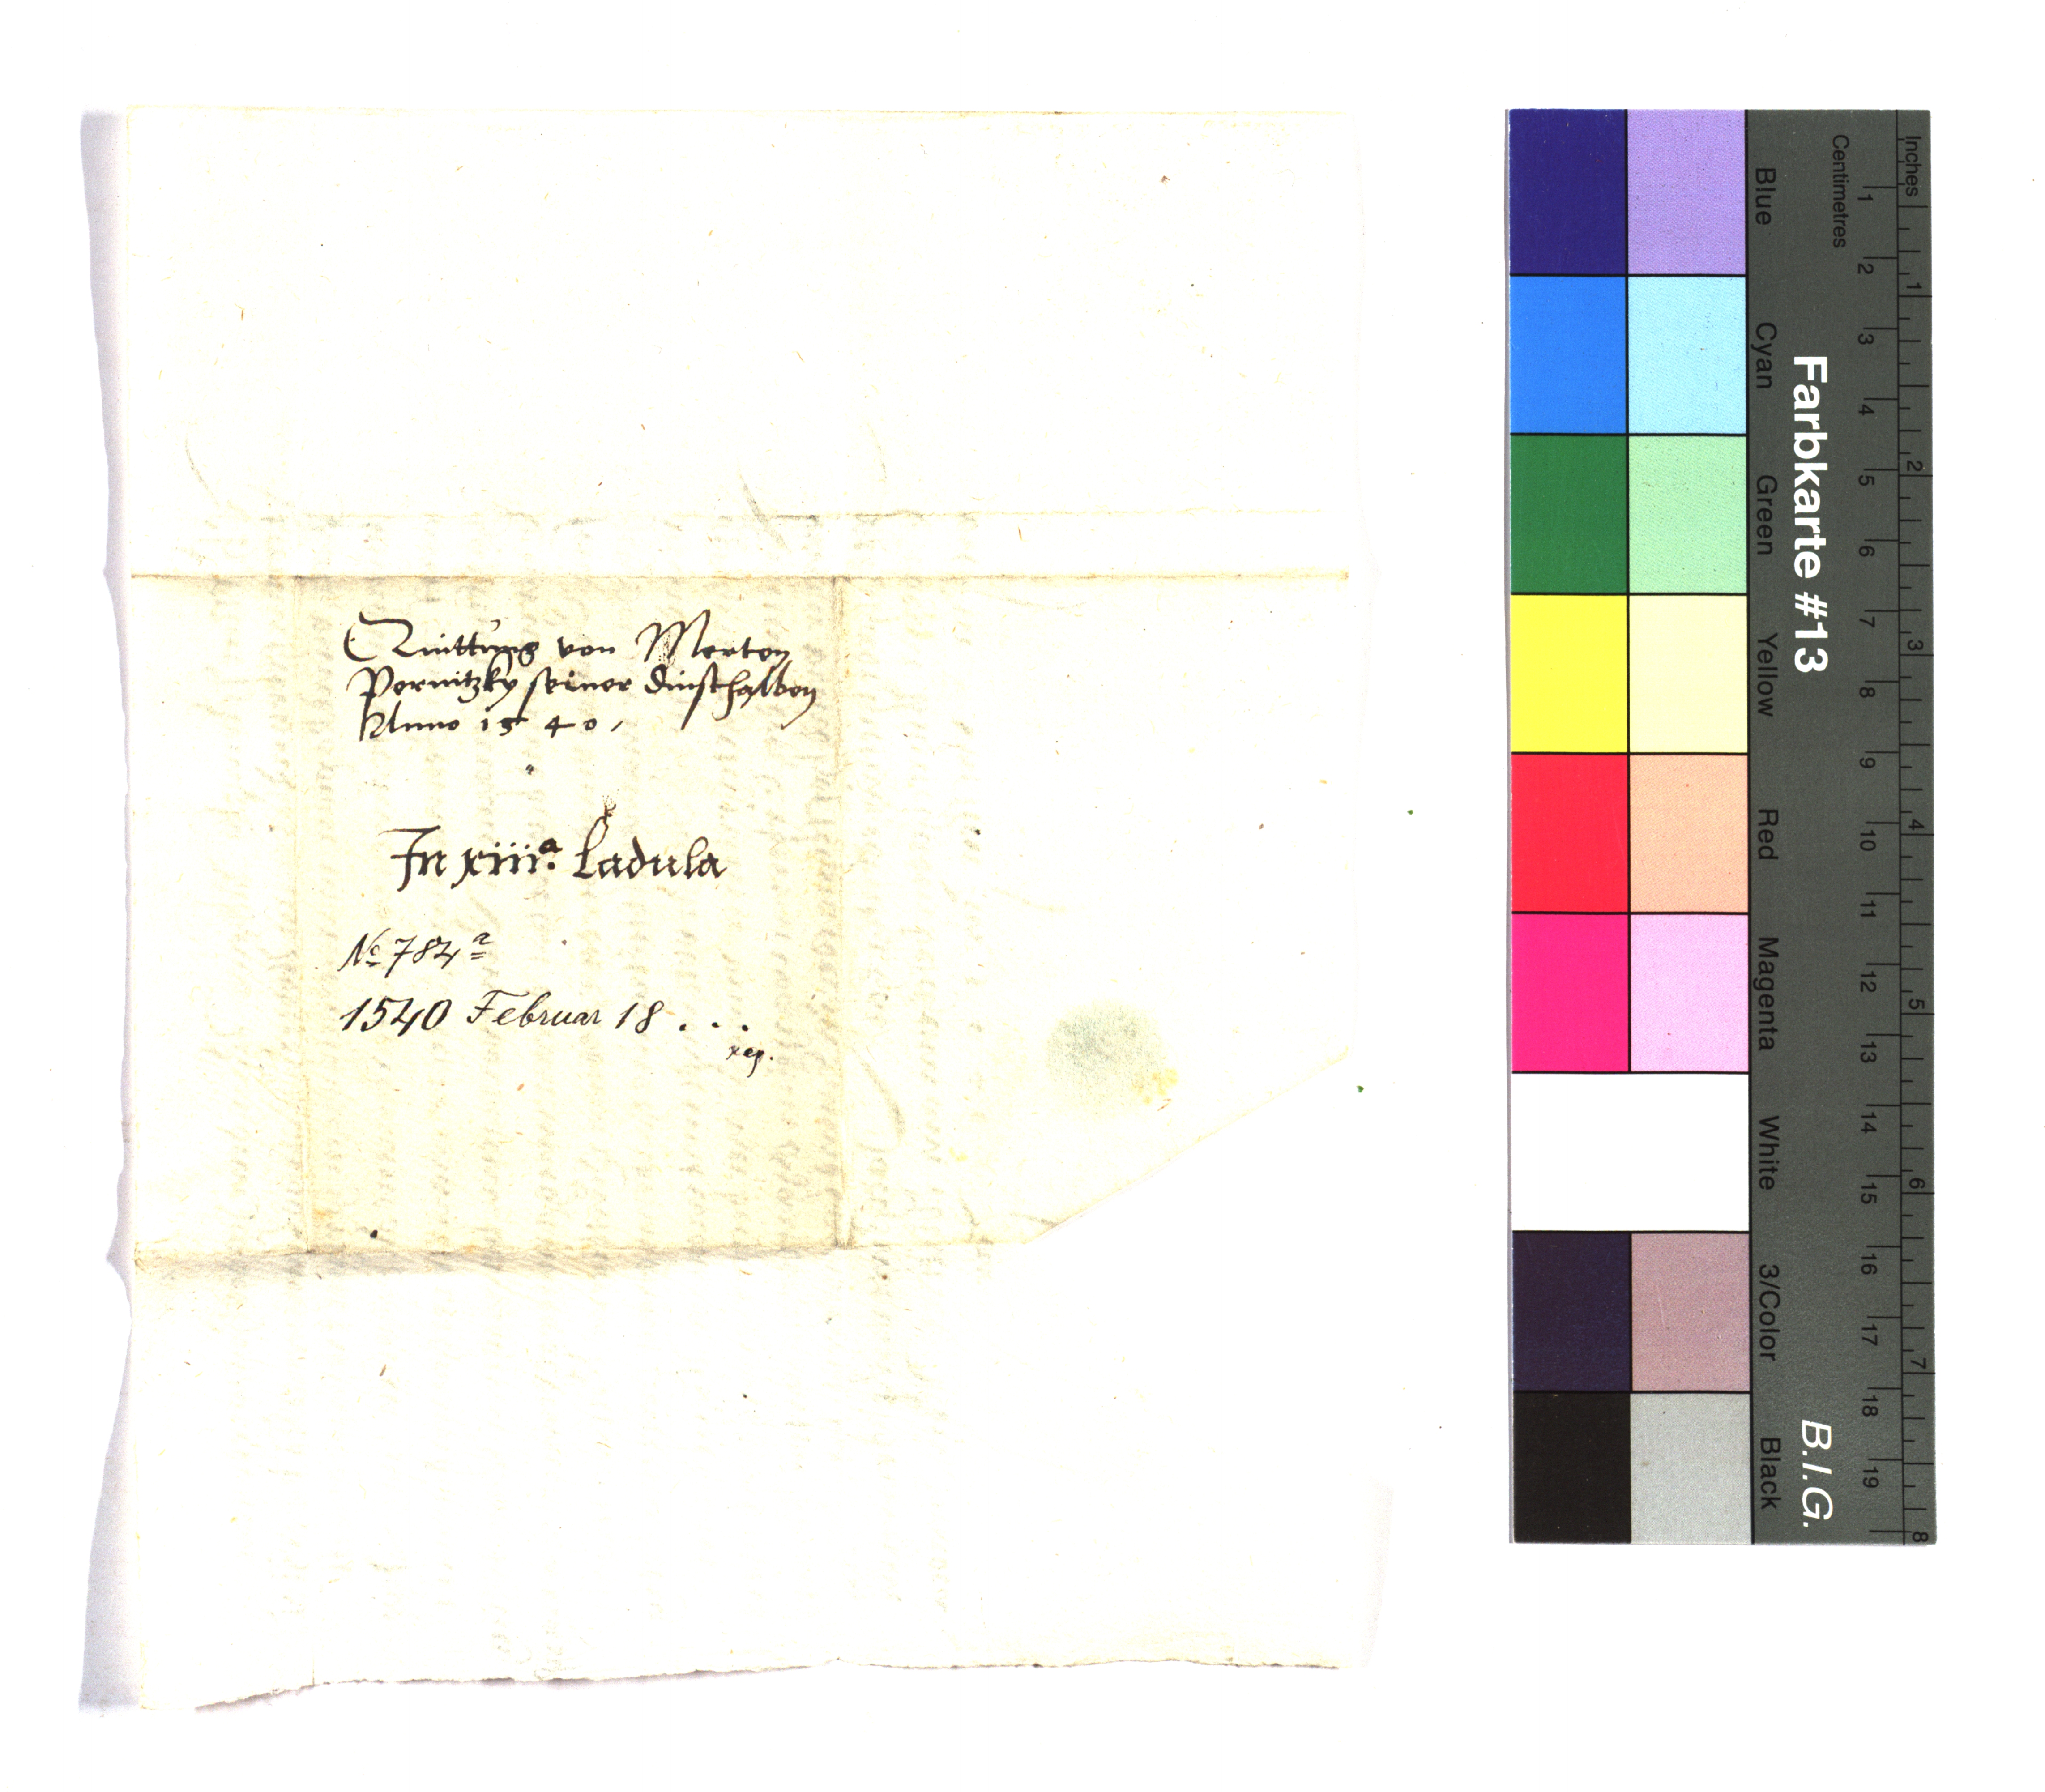 Quittung von Merten
Pernitzky seiner dinsthalben
Anno 1540,
In xiiiᵃ. Ladula
No 784ᵃ
1540 Februar 18 . . .
Farbkarte #13
B.I.G.
Blue
Cyan
Green
Yellow
Red
Magenta
White
3/Color
Black
Centimetres
1 2 3 4 5 6 7 8 9 10 11 12 13 14 15 16 17 18 19
Inches
1 2 3 4 5 6 7 8